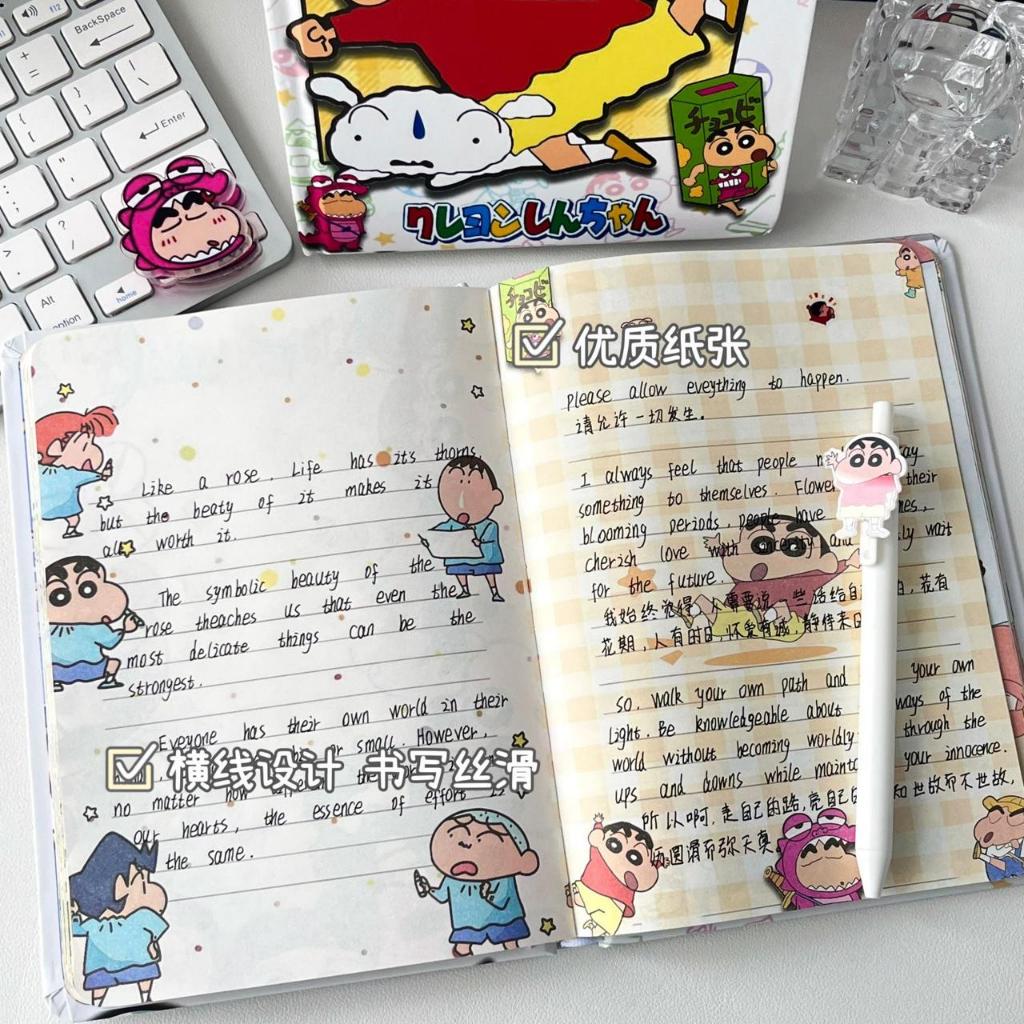 BackSpace
Enter
Alt
option
home
F12
チョコビ
クレヨンしんちゃん
チョコビ
优质纸张
please allow eveything to happen.
请允许一切发生。
I always feel that people
something to themselves. their
blooming periods, people have
cherish love with sincerity and wait
for the future.
我始终觉得,人需要说一些话给自 花有
花期,人有时
So, walk your own path and your own
light. Be knowledgeable about ways of the
world without becoming worldly through the
ups and downs while your innocence.
所以啊,走自己的路,亮自己 知世故而不世故,
圆滑而弥天真
Like a rose. Life has it's thorns,
but the beaty of it makes it
all worth it.
The symbolic beauty of the
rose theaches us that even the
most delicate things can be the
strongest.
Eveyone has their own world in their
or small. However,
横线设计 书写丝滑
no matter how the
our hearts, the essence of effort is
the same.